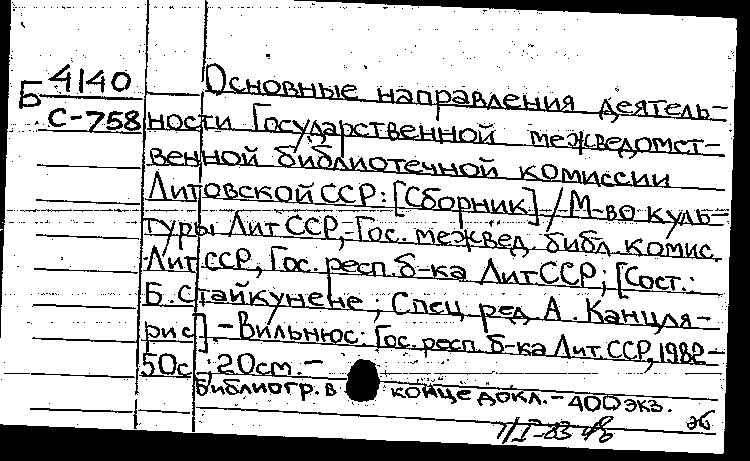 Б 4140
С-758
Основные направления деятель-
ности Государственной межведомст-
венной библиотечной комиссии
Литовской ССР: [Сборник] / М-во куль-
туры Лит ССР, Гос. межвед. библ. комис.
Лит ССР, Гос. респ. б-ка Лит ССР; [Сост.:
Б. Стайкунене; Спец. ред. А. Канцля-
рис]. - Вильнюс: Гос. респ. б-ка Лит. ССР, 1982-
50с.; 20см. -
Библиогр. в конце докл. - 400 экз.
эб